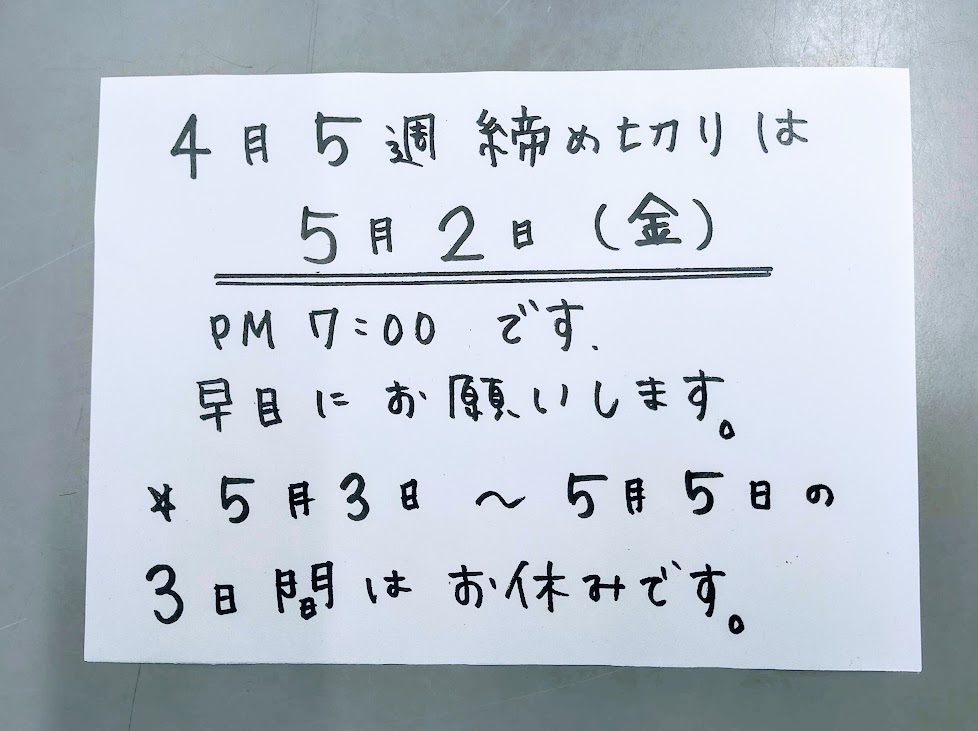 4月 5週 締め切りは
5月2日 (金)
PM 7:00 です.
早目に お願いします。
* 5月3日 〜 5月5日の
3日間は お休みです。